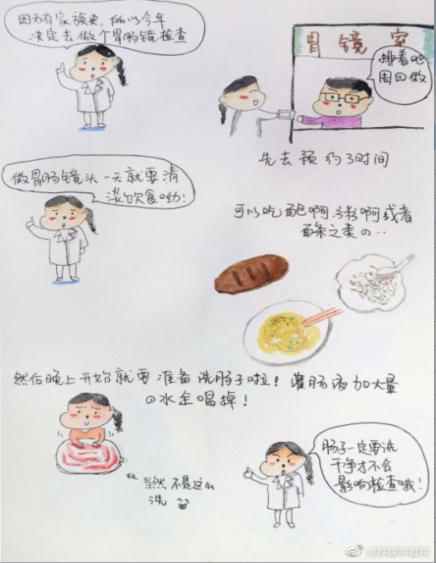 因为有家族史,所以今年
决定去做个胃肠镜检查
胃镜室
排着吧
周四做
先去预约了时间
做胃肠镜头一天就要清
淡饮食哟!
可以吃面包啊、粥啊或者
面条之类の..
然后晚上开始就要准备洗肠子啦!灌肠液加大量
の水全喝掉!
当然不是这么
洗
肠子一定要洗
干净才不会
影响检查哦!